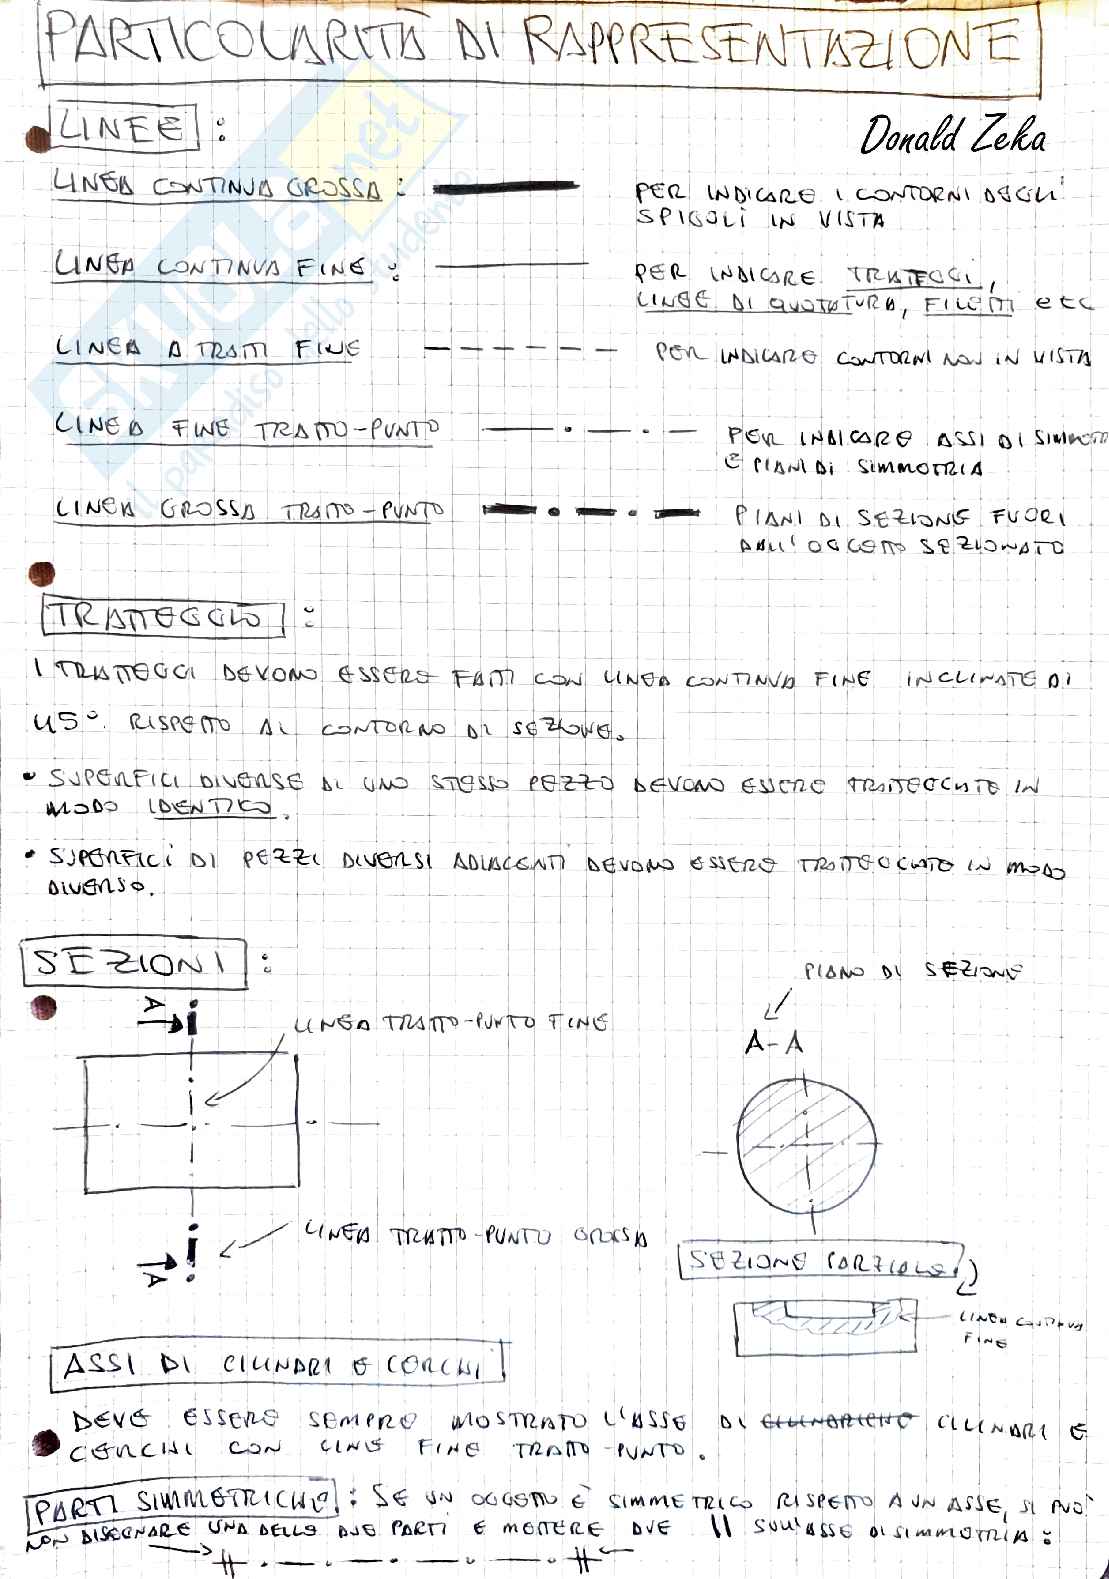 PARTICOLARITÀ DI RAPPRESENTAZIONE
LINEE :
Donald Zeka
LINEA CONTINUA GROSSA :
PER INDICARE I CONTORNI DEGLI
SPIGOLI IN VISTA
LINEA CONTINUA FINE :
PER INDICARE TRATTEGGI,
LINEE DI QUOTATURA, FILETTI etc
LINEA A TRATTI FINE
PER INDICARE CONTORNI NON IN VISTA
LINEA FINE TRATTO-PUNTO
PER INDICARE ASSI DI
E PIANI DI SIMMETRIA
LINEA GROSSA TRATTO-PUNTO
PIANI DI SEZIONE FUORI
DALL'OGGETTO SEZIONATO
SKUOLA.net
il paradiso dello studente
TRATTEGGIO :
I TRATTEGGI DEVONO ESSERE FATTI CON LINEA CONTINUA FINE INCLINATE DI
45° RISPETTO AL CONTORNO DI SEZIONE.
• SUPERFICI DIVERSE DI UNO STESSO PEZZO DEVONO ESSERE TRATTEGGIATE IN
MODO IDENTICO.
• SUPERFICI DI PEZZI DIVERSI ADIACENTI DEVONO ESSERE TRATTEGGIATE IN MODO
DIVERSO.
SEZIONI :
PIANO DI SEZIONE
A
LINEA TRATTO-PUNTO FINE
A-A
LINEA TRATTO-PUNTO GROSSA
A
SEZIONE PARZIALE
LINEA CONTINUA
FINE
ASSI DI CILINDRI E CERCHI
DEVE ESSERE SEMPRE MOSTRATO L'ASSE DI CILINDRI E
CERCHI CON LINE FINE TRATTO-PUNTO.
PARTI SIMMETRICHE : SE UN OGGETTO È SIMMETRICO RISPETTO A UN ASSE, SI PUÒ
NON DISEGNARE UNA DELLE DUE PARTI E METTERE DUE || SULL'ASSE DI SIMMETRIA :